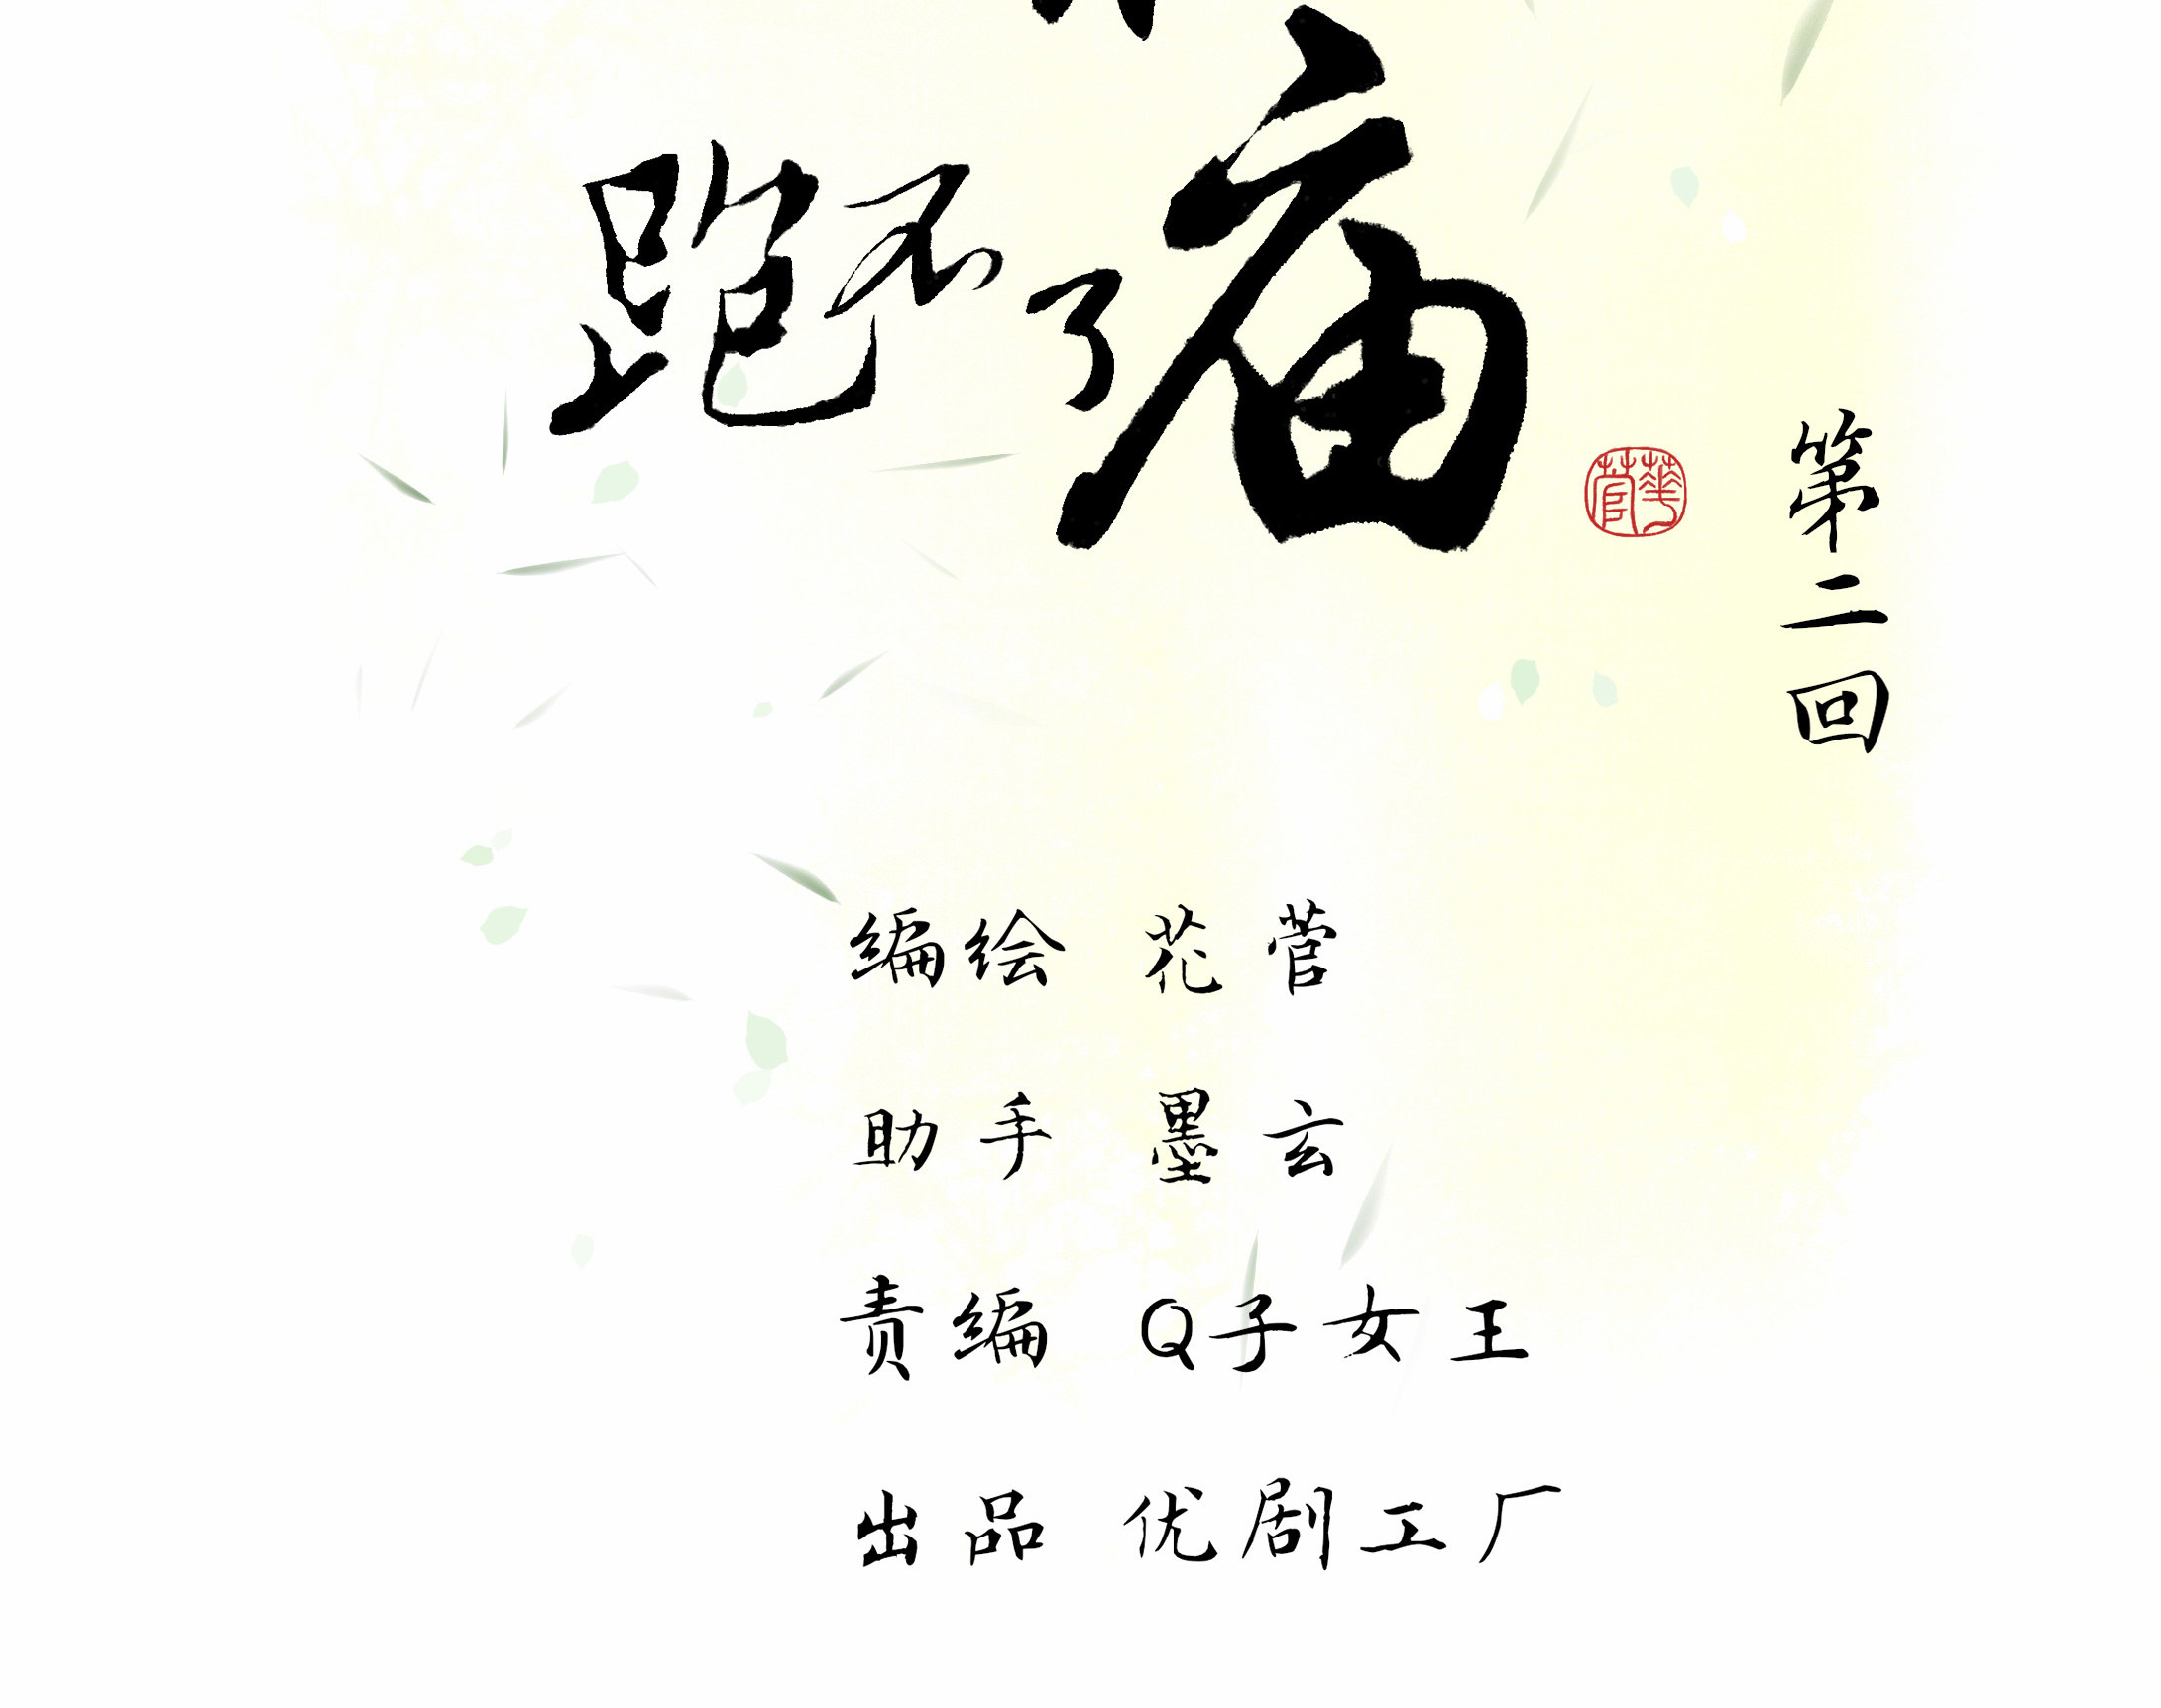 跑不了庙
華菅
第二回
编绘 花菅
助手 墨玄
责编 Q子女王
出品 优剧工厂